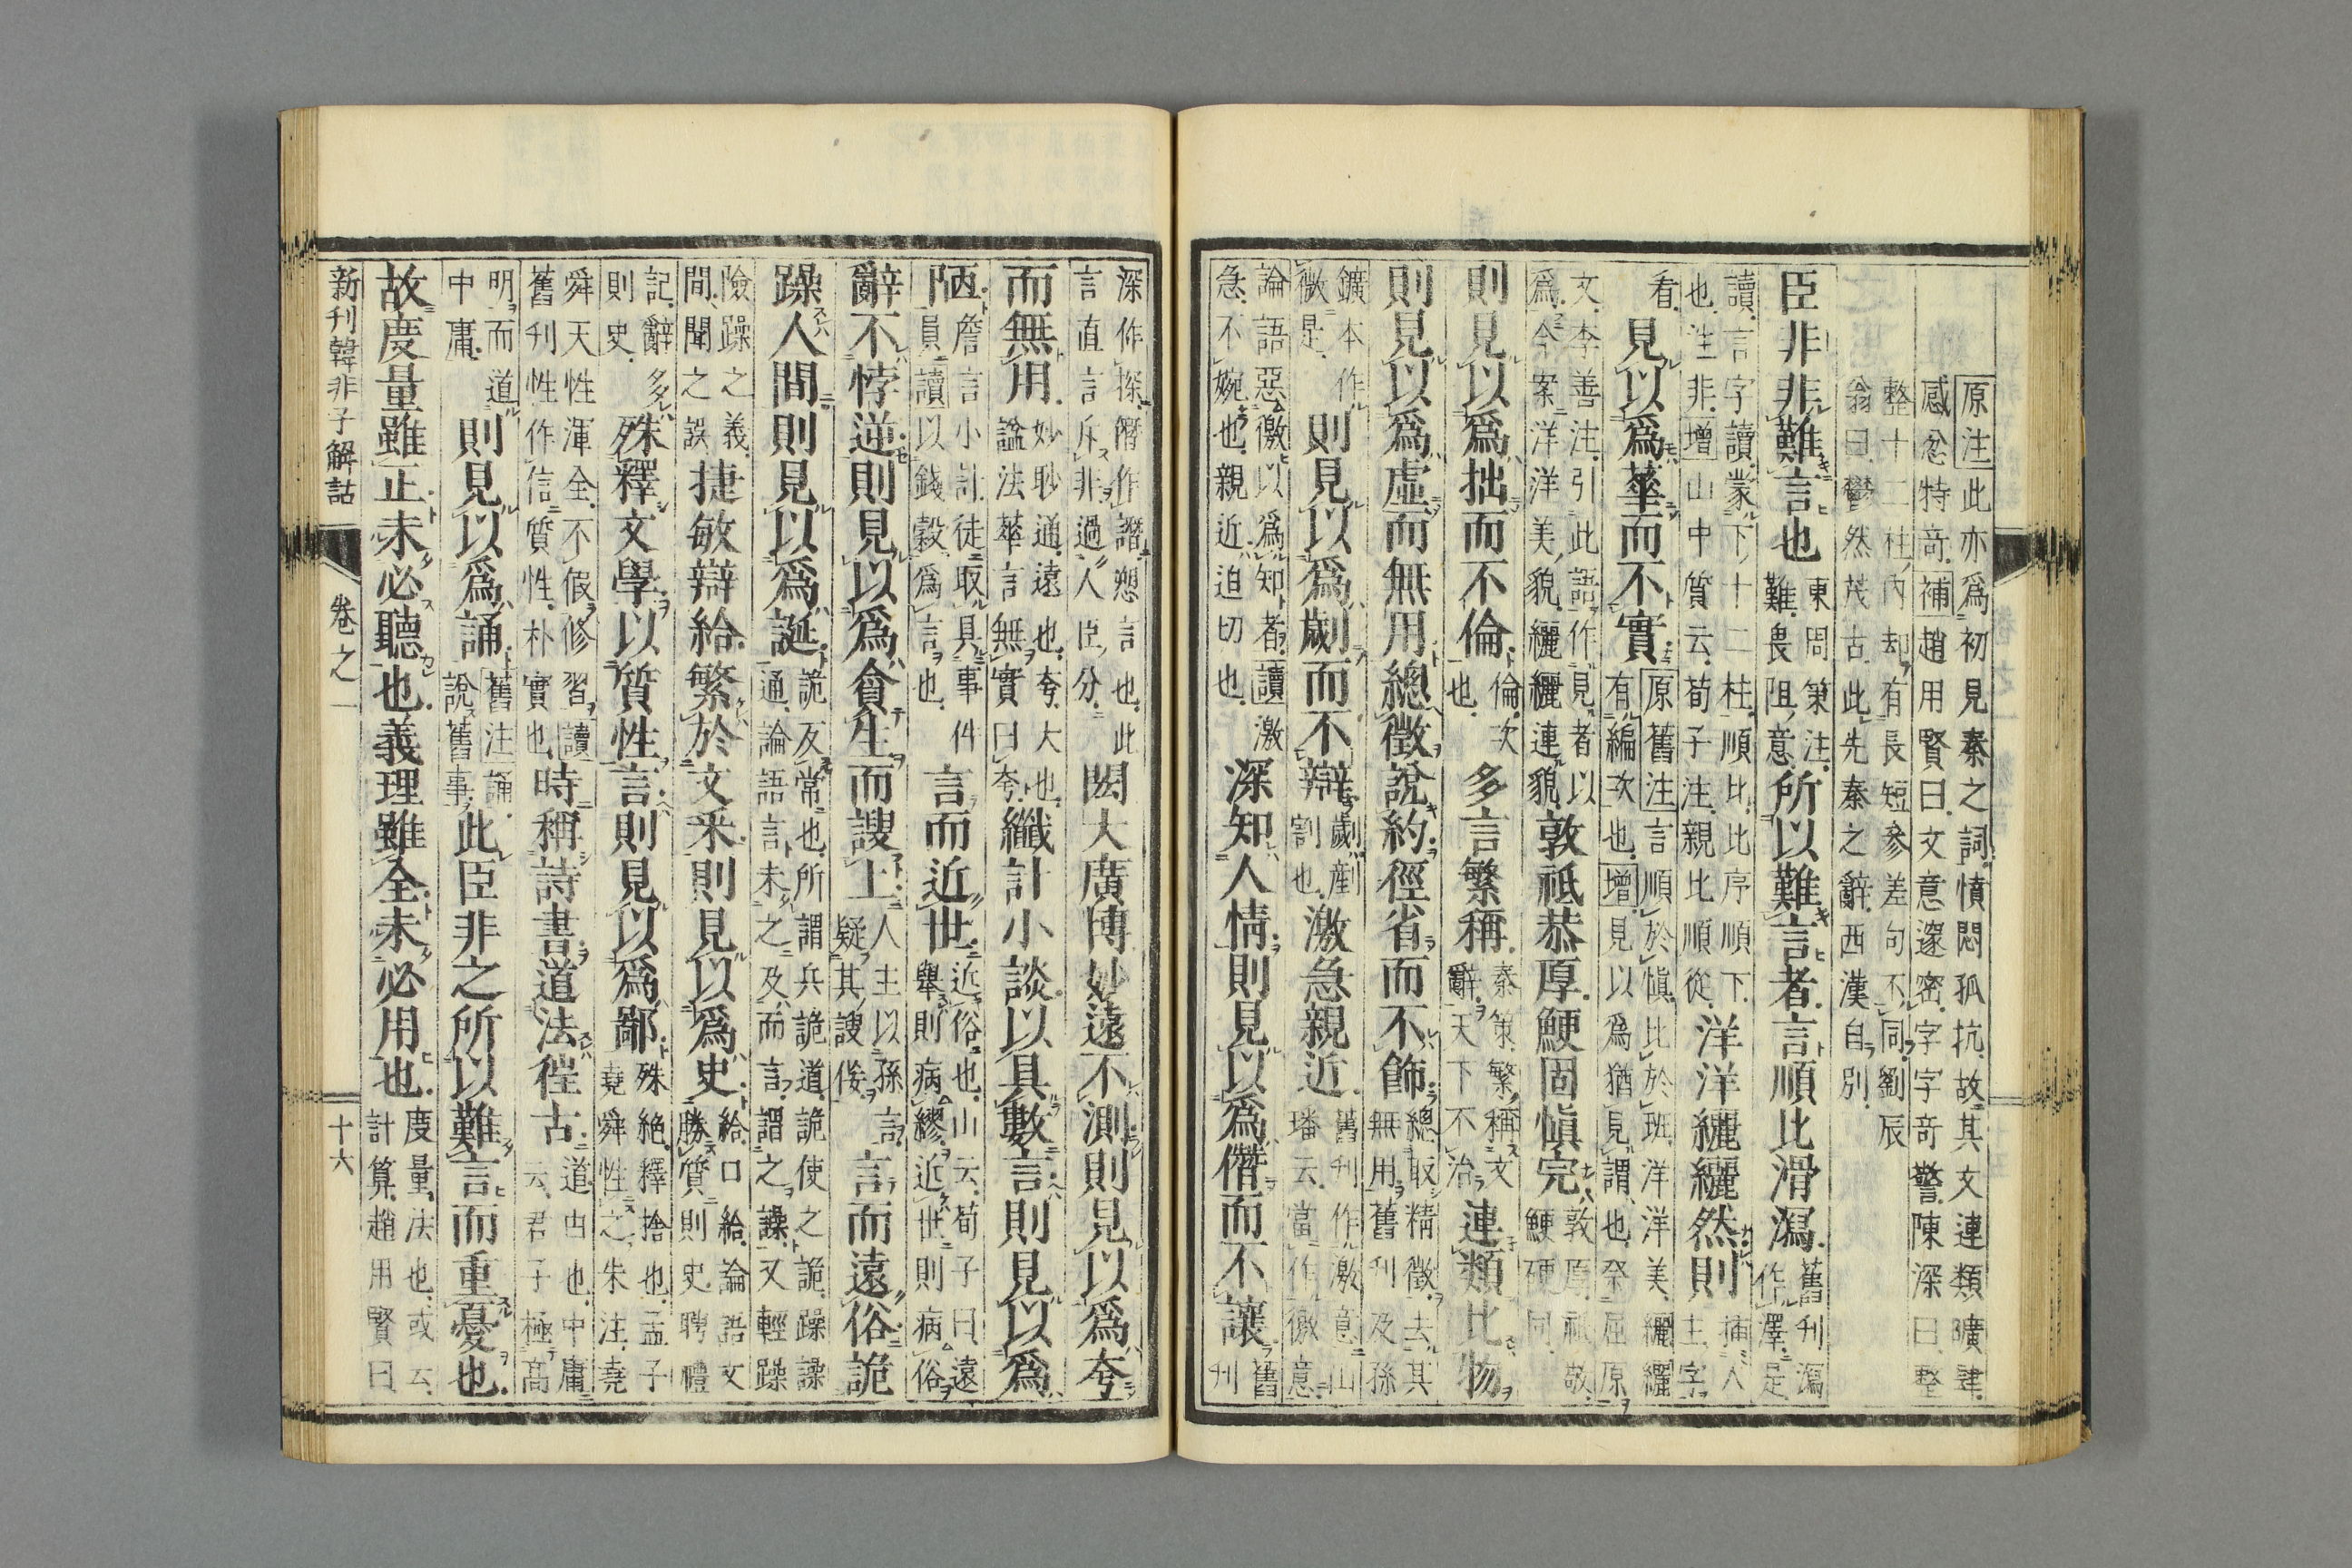 原注此亦爲初見秦之詞憤悶孤抗故其文連類曠肆
感忿特奇補趙用賢曰文意邃密字字奇警陳深曰整
整十二柱內却有長短參差句不同劉辰
翁曰鬱然茂古此先秦之辭西漢自別
臣非非難言也東周策注難畏阻意所以難言者言順比滑瀉舊刊瀉作澤足
讀言字讀蒙下十二柱順比比序順下也注非增山中質云荀子注親比順從洋洋纚纚然則插入主字
看見以爲華而不實原舊注言順於愼比於班洋洋美纚纚有編次也增見以爲猶見謂也祭屈原
文李善注引此語作見者以爲今案洋洋美貌纚纚連貌敦祗恭厚鯁固愼完敦厚祗敬鯁硬同
則見以爲拙而不倫倫次也多言繁稱秦策繁稱文辭天下不治連類比物
則見以爲虛而無用總徵說約徑省而不飾總取精徵去其無用舊刊及孫
鑛本作微是則見以爲劌而不辯劌割也激急親近舊刊作激意山璠云當作徼意
論語惡徼以爲知者讀激急不婉也親近迫切也深知人情則見以爲僭而不讓舊刊
深作探僭作譖愬言也此言直言斥非過人臣分閎大廣博妙遠不測則見以爲夸
而無用妙眇通遠也夸大也諡法華言無實曰夸纖計小談以具數言則見以爲
陋詹言小計徒取具事件員讀以錢穀爲言也言而近世近俗也山云荀子曰遠舉則病繆近世則病俗
辭不悖逆則見以爲貪生而諛上人主以孫言疑其諛佞言而遠俗詭
躁人間則見以爲誕詭反常也所謂兵詭道詭使之詭躁譟通論語言未之及而言謂之譟又輕躁
險躁之義間聞之誤捷敏辯給繁於文采則見以爲史給口給論語文勝質則史聘禮
記辭多則史殊釋文學以質性言則見以爲鄙殊絕釋捨也孟子堯舜性之朱注堯
舜天性渾全不假修習讀舊刊性作信質性朴實也時稱詩書道法往古道由也中庸云君子極高
明而道中庸則見以爲誦舊注誦說舊事此臣非之所以難言而重憂也
故度量雖正未必聽也義理雖全未必用也度量法也或云計算趙用賢曰
新刊韓非子解詁 卷之一 十六